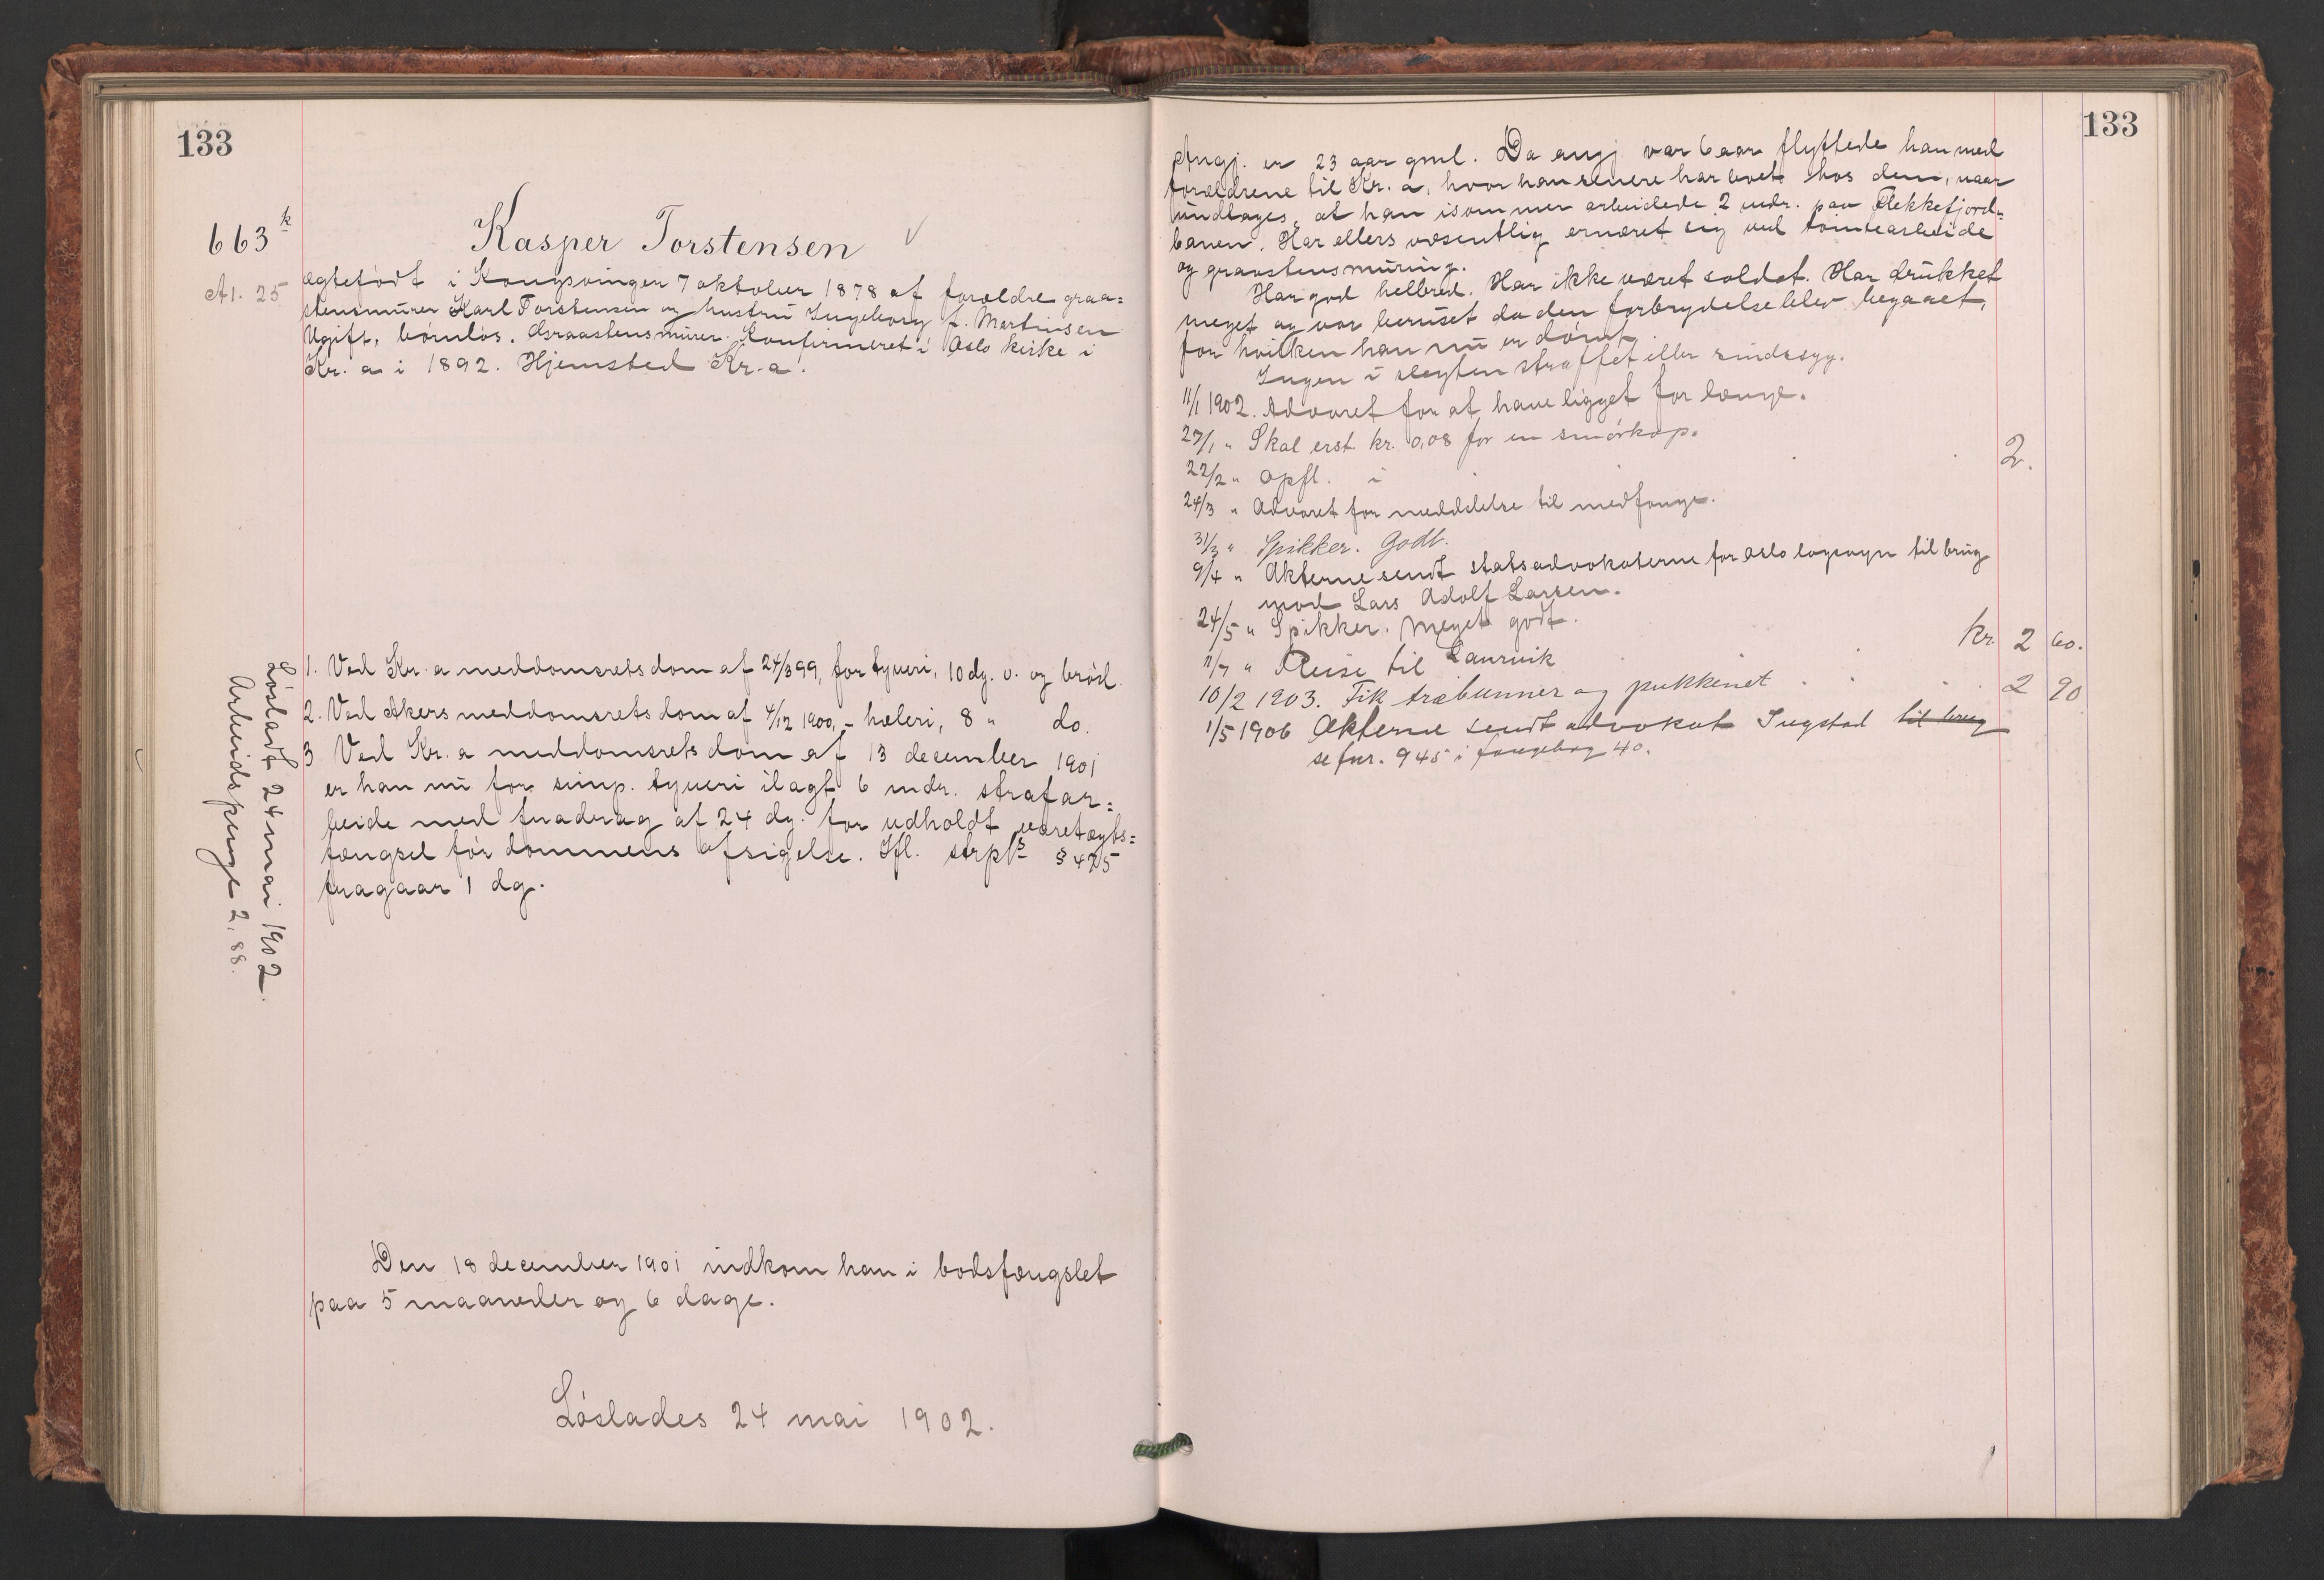 133
663 k
A1. 25
Kasper Torstensen
ægtefødt i Kongsvinger 7 oktober 1878 af forældre graa=
stensmurer Karl Torstensen og hustru Ingeborg f. Martinsen
Ugift, børnløs. Graastensmurer. Konfirmeret i Oslo kirke i
Kr.a i 1892. Hjemsted Kr.a.
1. Ved Kr.a meddomsretsdom af 24/3 99, for tyveri, 10 dg. v. og brød.
2. Ved Akers meddomsretsdom af 4/12 1900, - hæleri, 8 " do.
3. Ved Kr.a meddomsrets dom af 13 december 1901
er han nu for simp. tyveri ilagt 6 mdr. strafar=
beide med fradrag af 24 dg. for udholdt varetægts=
fængsel før dommens afsigelse. Ifl. strpls § 475
fragaar 1 dg.
Løsladt 24 mai 1902.
Arbeidspenge 2,88.
Den 18 december 1901 indkom han i bodsfængslet
paa 5 maaneder og 6 dage.
Løslades 24 mai 1902.
133
Angj. er 23 aar gml. Da angj var 6 aar flyttede han med
forældrene til Kr.a, hvor han senere har boet hos dem, naar
undtages, at han isommer arbeidede 2 mdr. paa Flekkefjord=
banen. Har ellers væsentlig ernæret sig ved tomtearbeide
og graastensmuring.
Har god helbred. Har ikke været soldat. Har drukket
meget og var beruset da den forbrydelse blev begaaet,
for hvilken han nu er dømt.
Ingen i slegten straffet eller sindssyg.
11/1 1902. Advaret for at have ligget for længe.
27/1 " Skal erst. kr. 0,08 for en smørkop.
22/2 " Opfl. i 2.
24/3 " Advaret for meddelelse til medfange.
31/3 " Spikker. Godt.
9/4 " Akterne sendt statsadvokaterne for Oslo lagsogn til brug
mod Lars Adolf Larsen.
24/5 " Spikker. Meget godt.
11/7 " Reise til Laurvik Kr. 2 60.
10/2 1903. Fik træbunner og pukkenet 2 90
1/5 1906 Akterne sendt advokat Ingstad til brug
se fnr. 945 i fangebog 40.